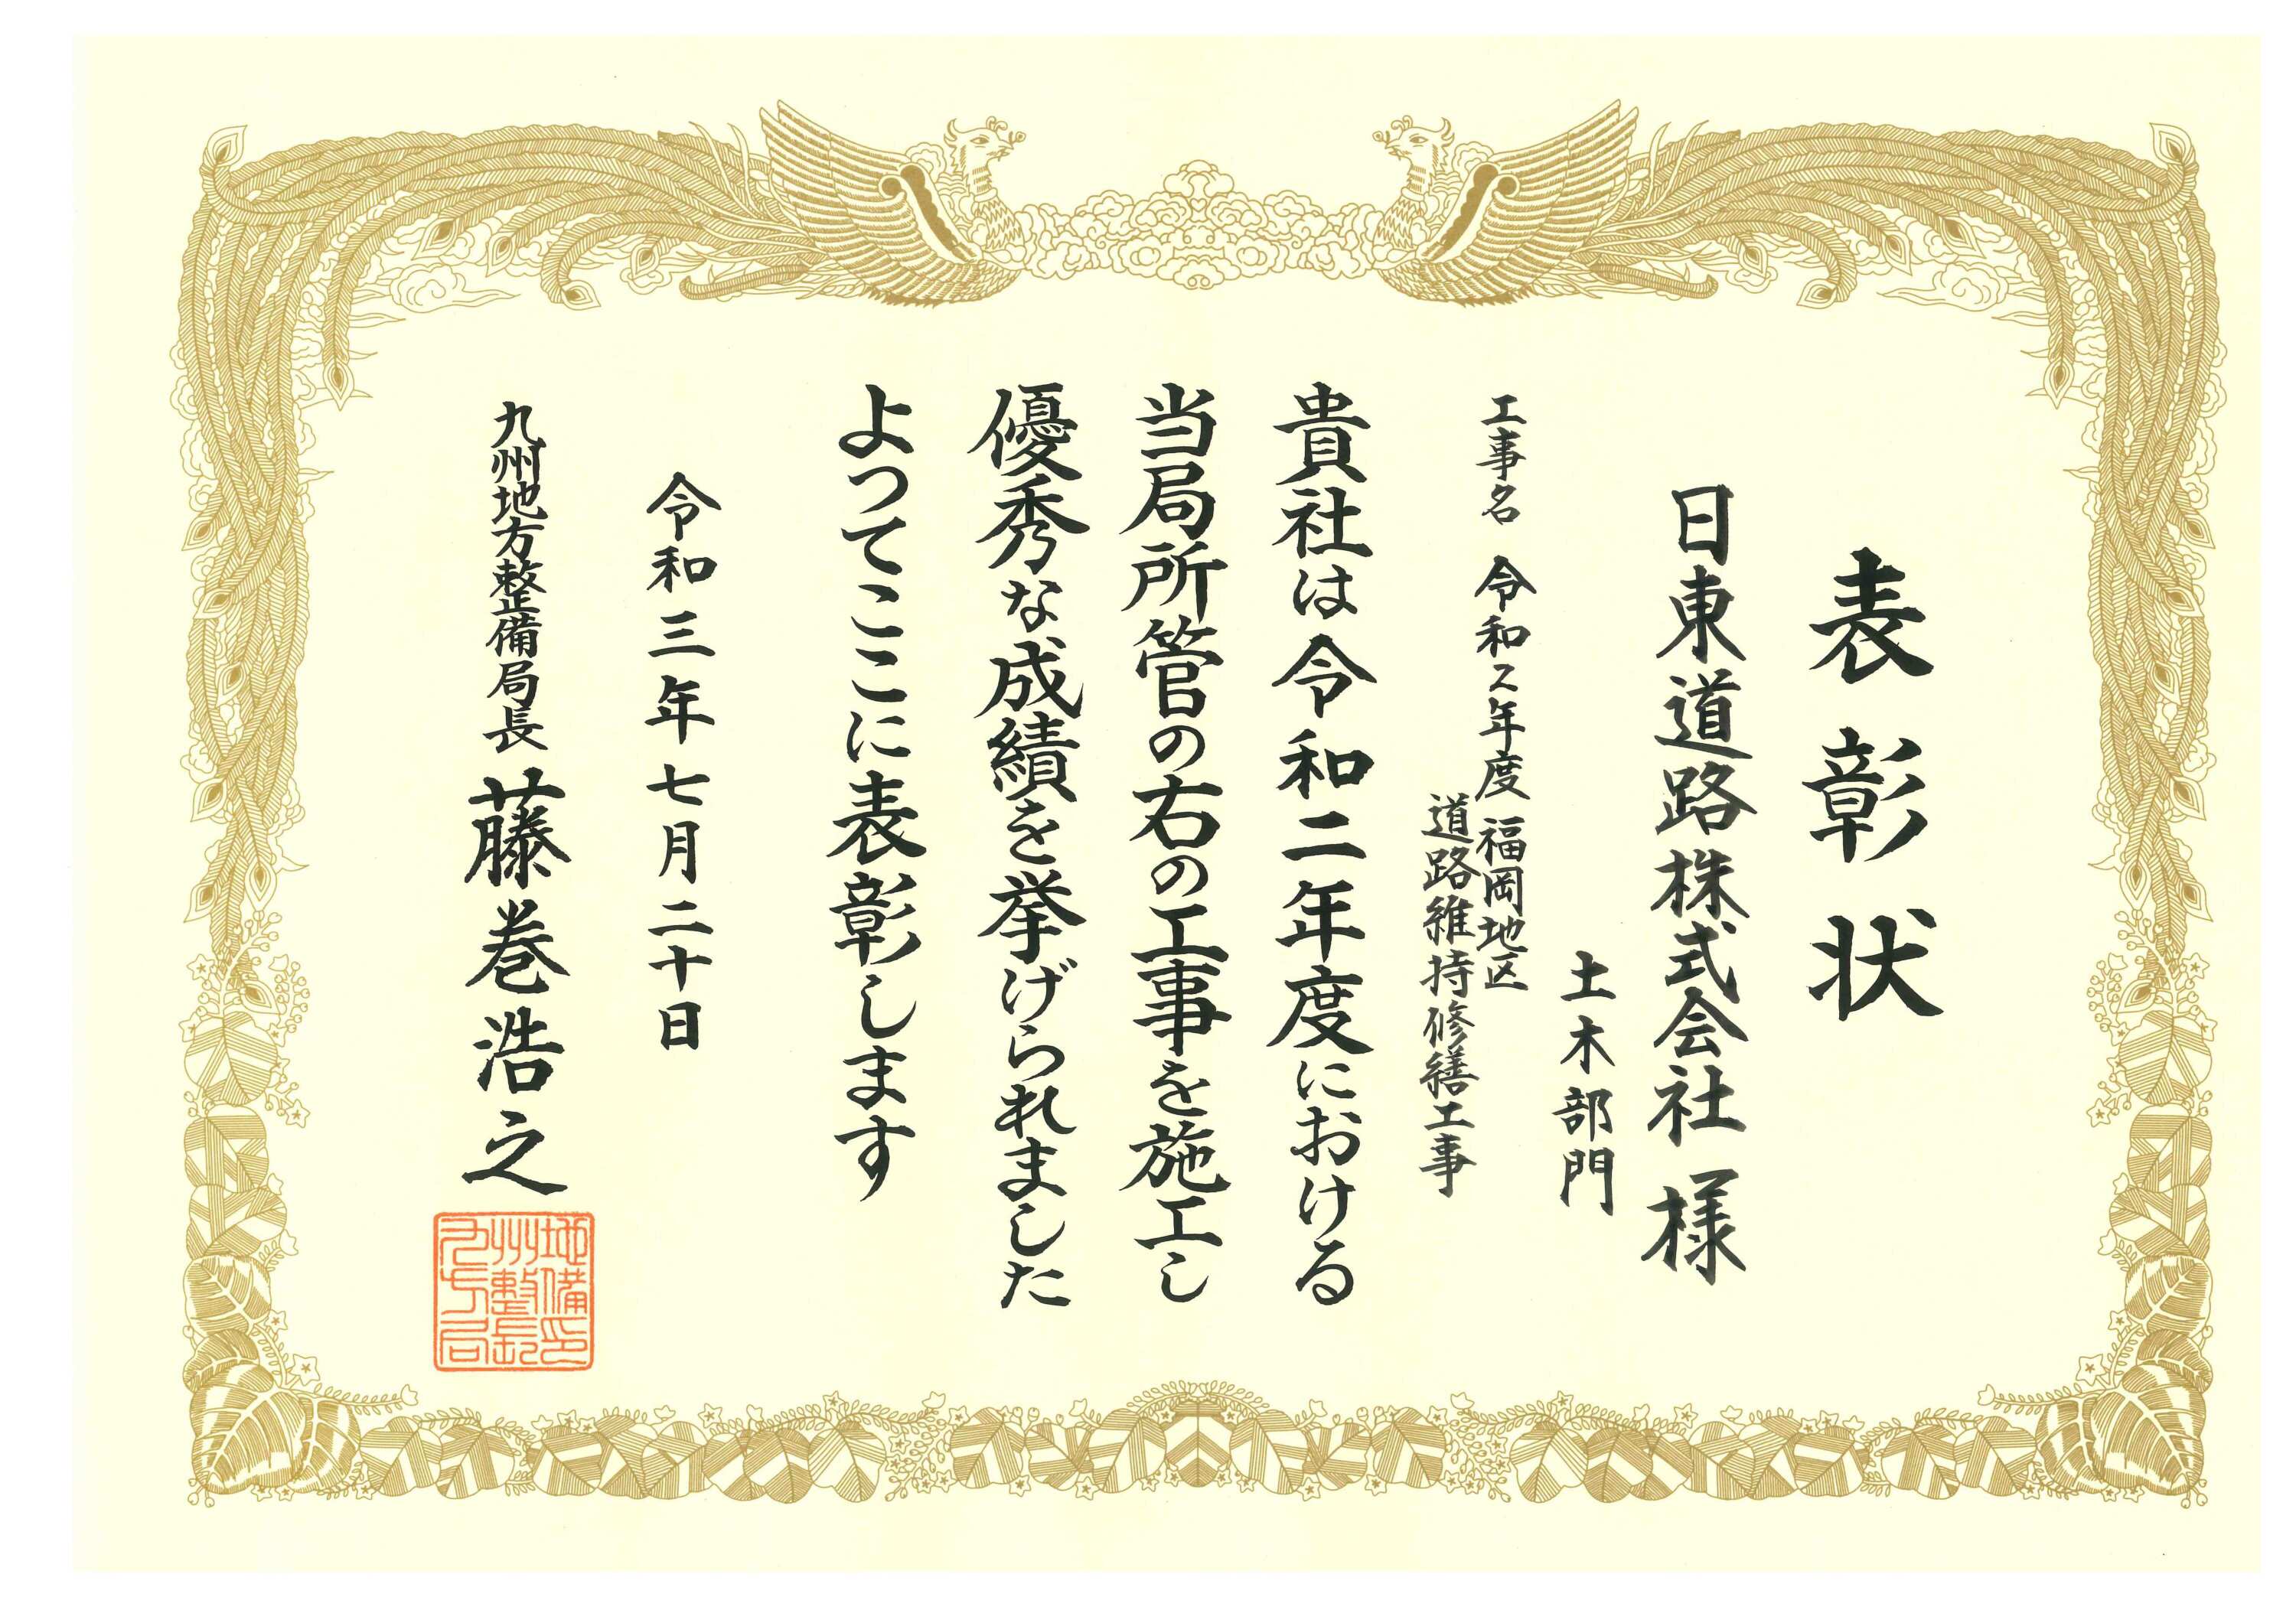 表彰状
日東道路株式会社様
土木部門
工事名 令和2年度 福岡地区
道路維持修繕工事
貴社は令和二年度における
当局所管の右の工事を施工し
優秀な成績を挙げられました
よつてここに表彰します
令和三年七月二十日
九州地方整備局長 藤巻浩之
九州地方整備局長印